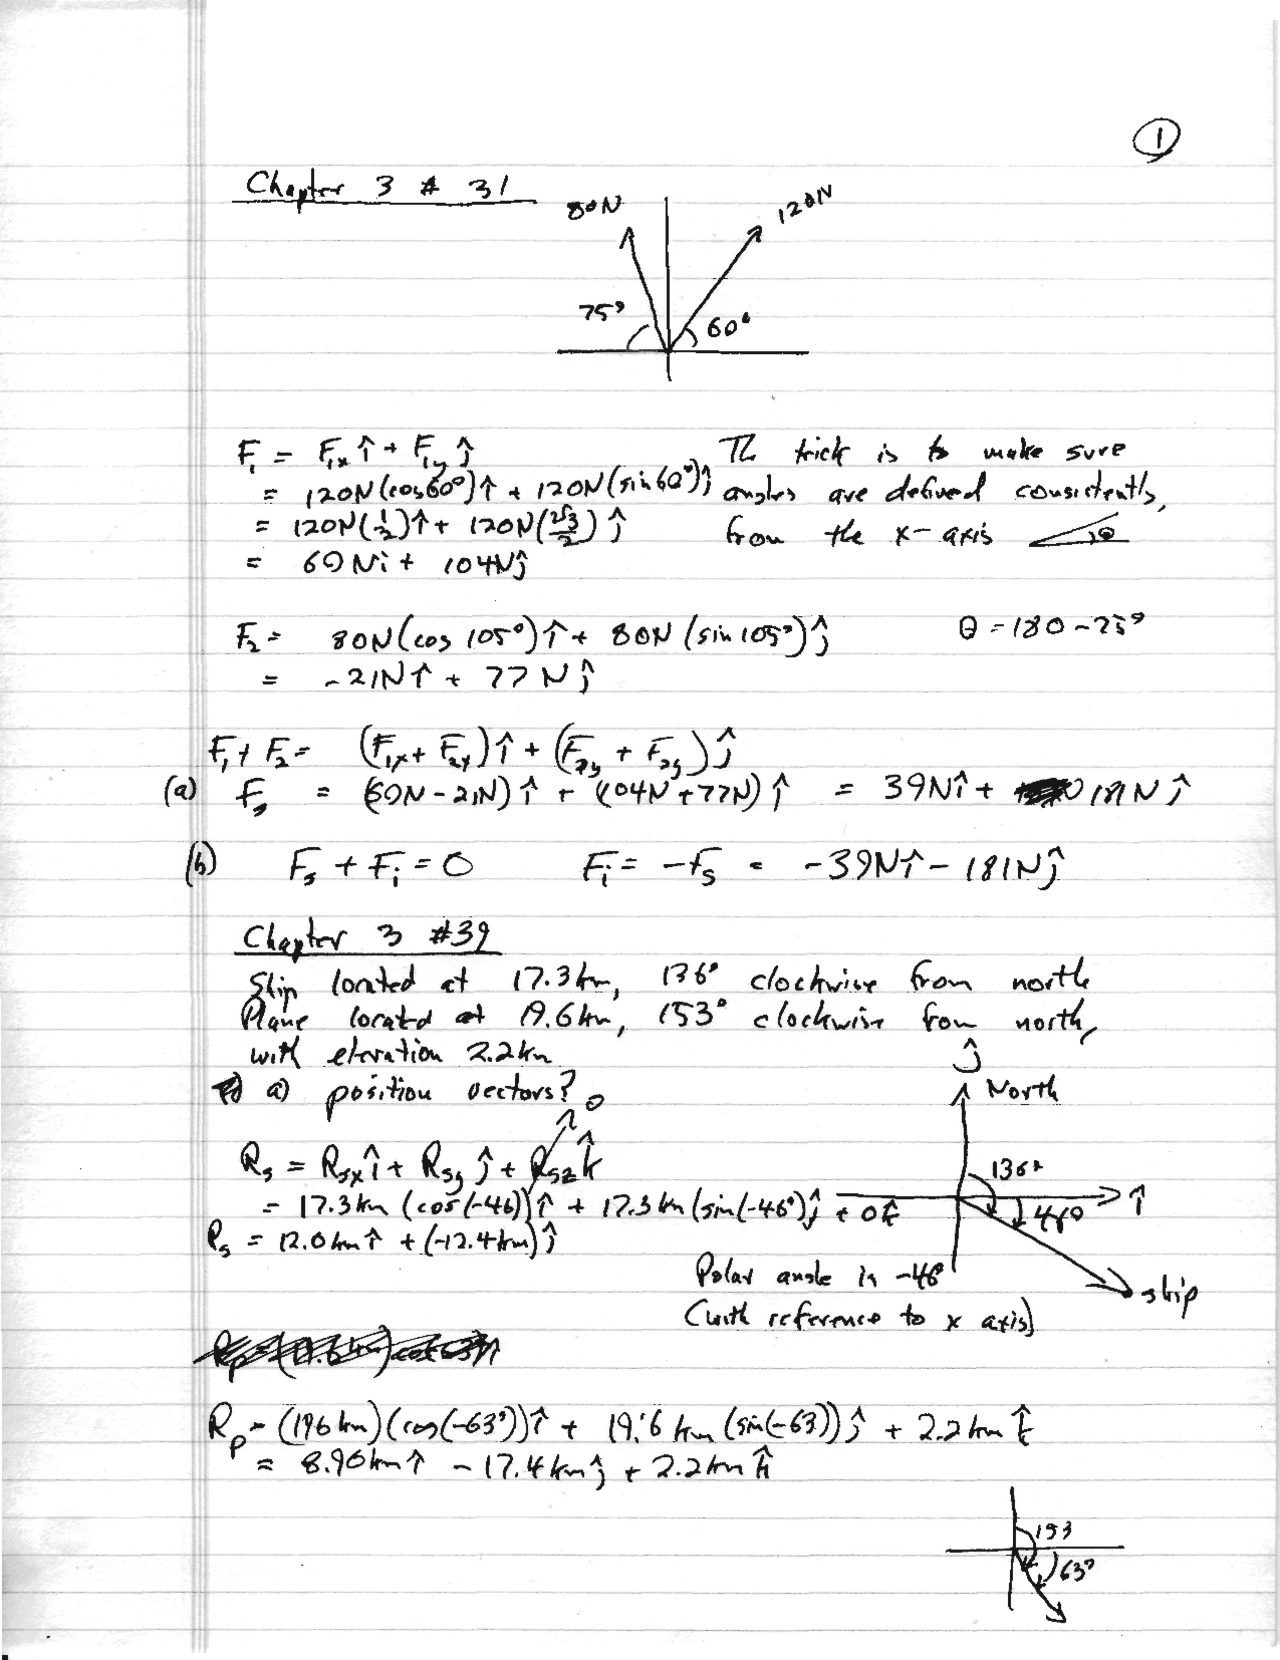 1
Chapter 3 # 31
80N
120N
75°
60°
F₁ = F₁ₓ î + F₁y ĵ
= 120N(cos60°)î + 120N(sin60°)ĵ
= 120N(1/2)î + 120N(√3/2) ĵ
= 60Ni + 104Nĵ
The trick is to make sure
angles are defined consistently,
from the x-axis θ
F₂ = 80N(cos 105°)î + 80N(sin105°)ĵ
θ = 180-75°
= -21Nî + 77Nĵ
F₁ + F₂ = (F₁ₓ + F₂ₓ)î + (F₂y + F₂y)ĵ
(a) Fₛ = (60N-21N)î + (104N+77N)ĵ = 39Nî + 181Nĵ
(b) Fₛ + Fᵢ = 0 Fᵢ = -Fₛ = -39Nî - 181Nĵ
Chapter 3 #39
Ship located at 17.3km, 136° clockwise from north
Plane located at 19.6km, 153° clockwise from north,
with elevation 2.2km
a) position vectors?
0
ĵ
North
136°
î
46°
ship
Rₛ = Rₛₓî + Rₛy ĵ + Rₛz k̂
= 17.3km (cos(-46))î + 17.3km(sin(-46°)ĵ + 0k̂
Rₛ = 12.0kmî + (-12.4km)ĵ
Polar angle is -46°
(with reference to x axis)
Rₚ = (19.6km)(cos(-63°))î + 19.6 km (sin(-63))ĵ + 2.2km k̂
= 8.90kmî - 17.4kmĵ + 2.2km k̂
153
63°